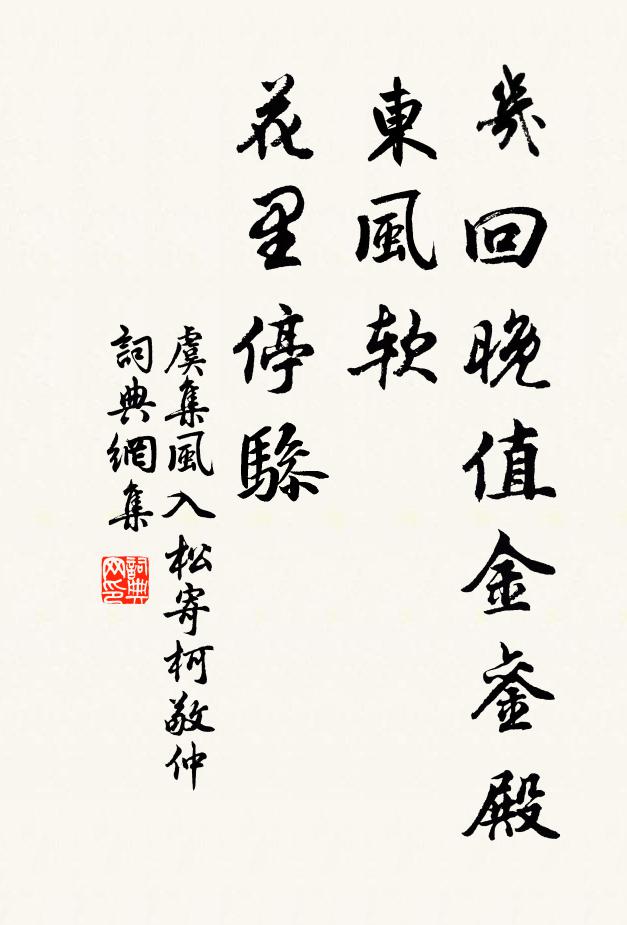 幾回晚值金鑾殿
東風軟
花里停驂
虞集風入松寄柯敬仲
詞典網集
詞典网印